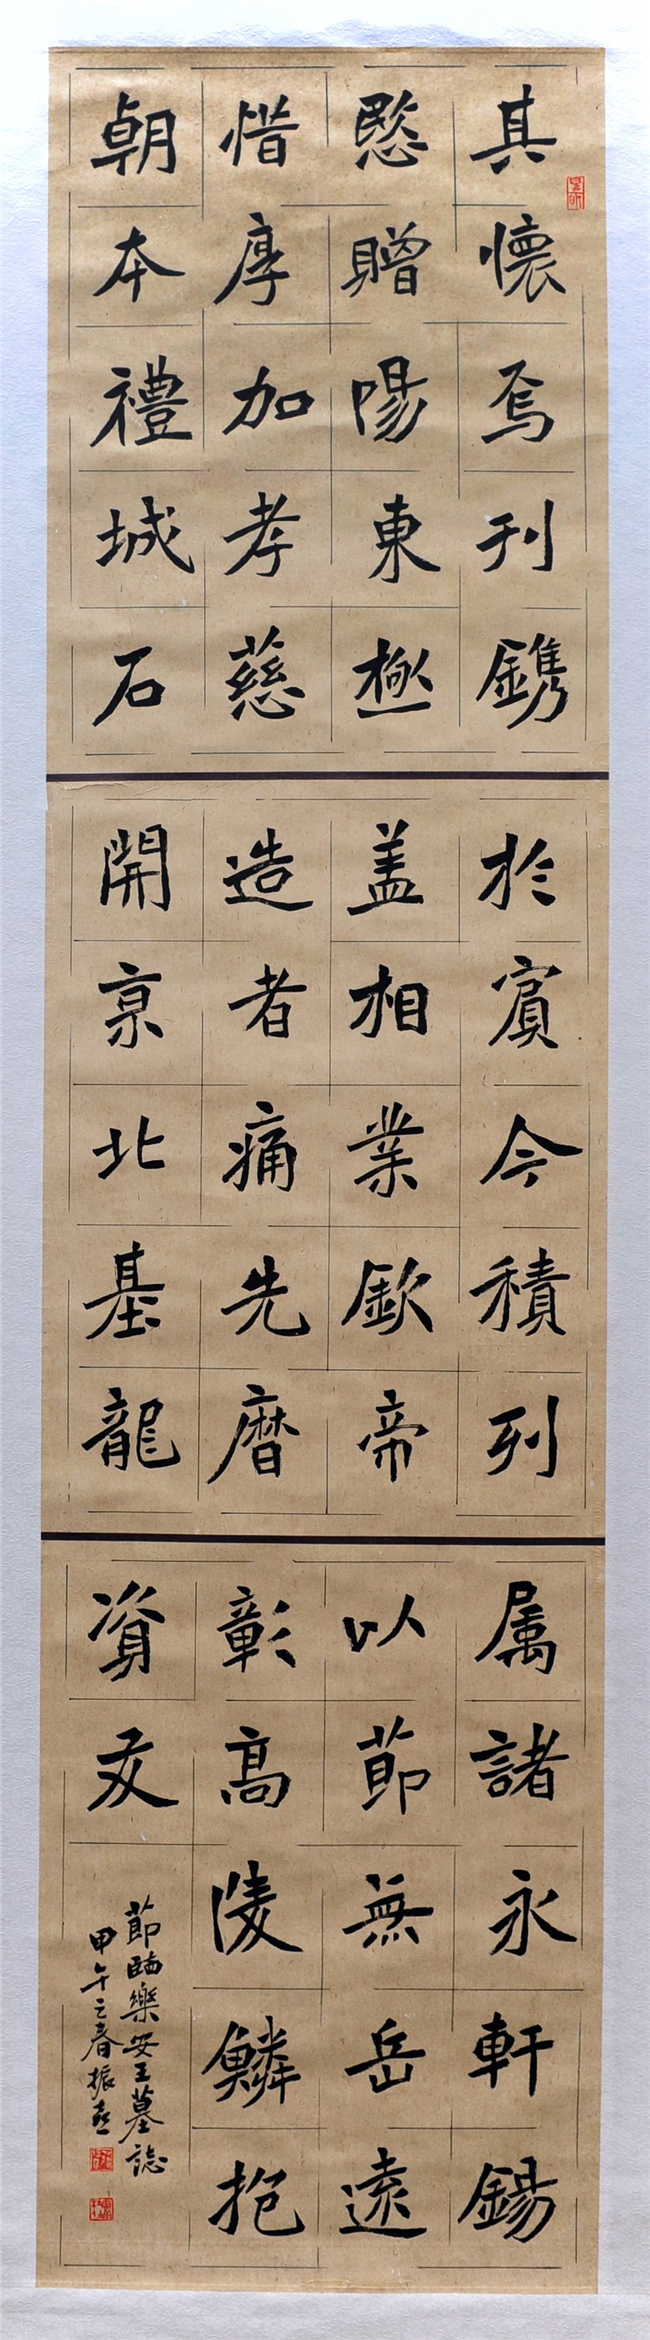 其懷焉刊鐫
愍贈陽東極
惜厚加孝慈
朝本禮城石
於賓今積列
蓋相業欽帝
造者痛先曆
開京北基龍
属諸永軒錫
以節無岳遠
彰高陵鱗抱
資友
節臨樂安王墓誌
甲午之春振